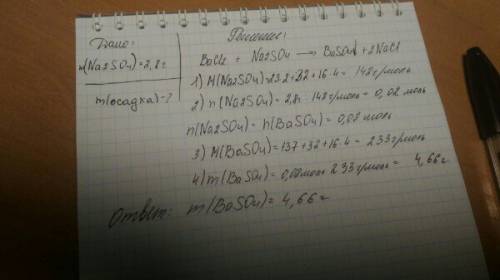 Дано:
m(Na2SO4)=2,8г
m(осадка)-?
Решение:
BaCl2 + Na2SO4 → BaSO4↓ + 2NaCl
1) M(Na2SO4)=23·2+32+16·4= 142г/моль
2) n(Na2SO4)=2,8г 142г/моль= 0,02 моль
n(Na2SO4)= n(BaSO4)= 0,02 моль
3) M(BaSO4)=137+32+16·4= 233г/моль
4) m(BaSO4)= 0,02моль 233г/моль= 4,66г
Ответ: m(BaSO4)= 4,66г